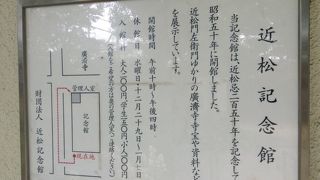 近松記念館
当記念館は、近松忌二百五十年を記念して
昭和五十年に開館しました。
近松門左衛門ゆかりの廣濟寺寺宝や資料など
を展示しています。
開館時間 午前十時〜午後四時
休館日 水曜日・十二月二十九日〜一月
入館料 大人
財団法人 近松記念館
廣濟寺
管理人室
記念館
現在地